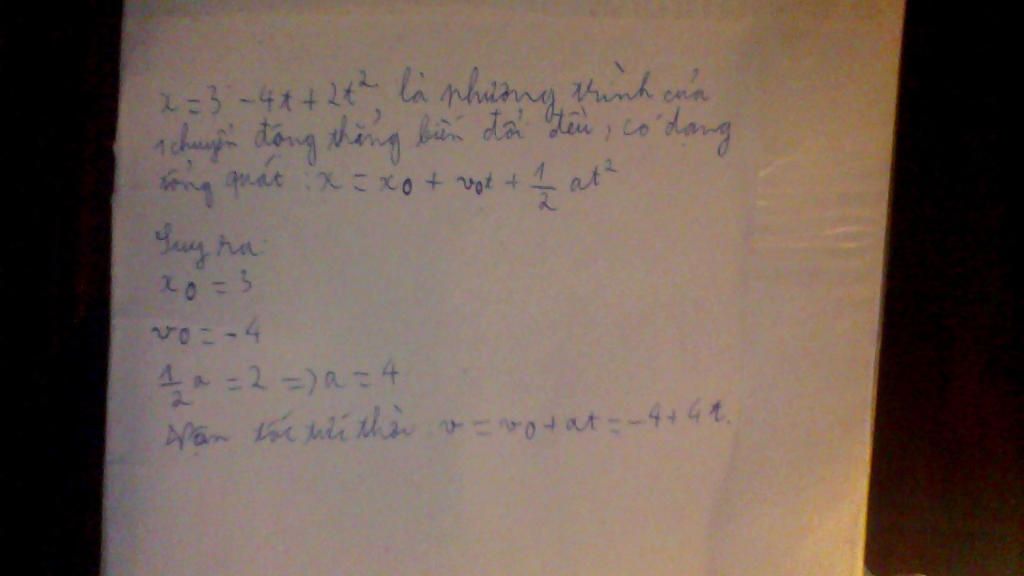 x = 3 - 4t + 2t², là phương trình của
1 chuyển động thẳng biến đổi đều, có dạng
tổng quát: x = x0 + v0t + 1/2 at²
Suy ra:
x0 = 3
v0 = -4
1/2 a = 2 => a = 4
Vận tốc tức thời: v = v0 + at = -4 + 4t.